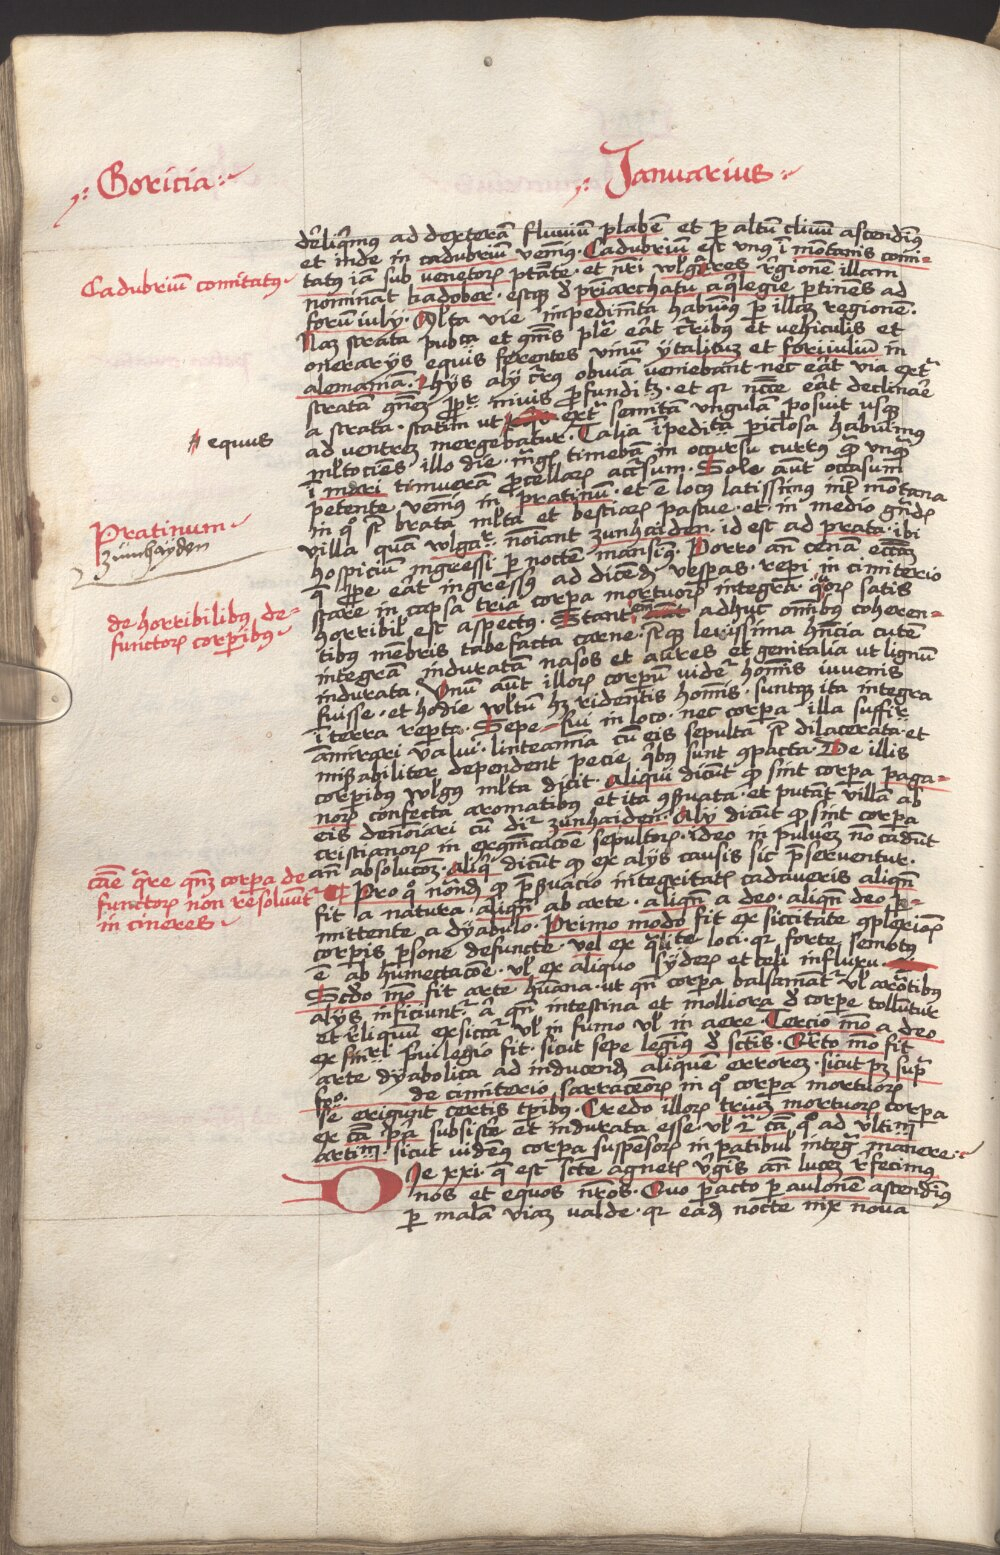 Goricia
Januarius
derliqimus ad dexteram fluuiũ plabẽ et p altũ cliuũ ascendimꝰ
et inde in cadubriũ venimꝰ · Cadubriũ est vnꝰ ĩ mõtanis comi-
tatus iã sub venetorꝝ ptãte · et nr̃i wlgares regionẽ illam
nominãt kadober · estqꝫ d priarchatu aqilegie ptinẽs ad
forũ iulÿ · Mlta vie impedimẽta habuimꝰ p illaꝫ regionẽ ·
Naꝫ strata publica et qm̃is plẽ erãt curribꝰ et vehiculis et
onerarÿs equis ferentes vinũ ÿtalicuꝫ et foriuliũ in
alemaniam · Hÿs alÿ currꝰ obuiã veniebant nec erãt via extra
stratã qm̃eꝫ ppt niuis pfunditatẽ · et qr ncc̃e erãt declinare
a strata · statim ut extra semitã vngulam posuit usqꝫ
ad ventreꝫ mergebatur · Talia ĩpedita piclosa habuimꝰ
mltociens illo die · magꝭ timebã in occursu currus qꝫ vnqꝫ
ĩ mari timuerã pcellarꝫ accessum · Sole aũt occasum
petente venimꝰ in pratinũ · et ẽ locus latissimus int mõtana
in qo st brata mlta et bestiarꝫ pascue · et in medio grãdis
villa quã wlgar noĩant zunhaiden · id est ad prata · ibi
hospiciũ ingressi p noctẽ mansimꝰ · Porro añ cenã eccliam
q̃ ꝓpe erãt ingressꝰ ad dicẽdas vespas · repi in cimiterio
stare in capsa tria corpa mortuorꝫ integra quorꝫ satis
horribilꝭ est aspectꝰ · Stant enim adhuc omĩbus coheren-
tibus mẽbris tabefacta carne · stqꝫ leuissima hñcia cutẽ
integrã induratã nasos et aures et genitalia ut lignũ
indurata · Vnũ aũt illorꝫ corpũ videt hominis iuuenis
fuisse · et hodie wltũ hꝫ ridentis hominis · suntqꝫ ita integra
ĩ terra repta · Sepe fui in loco · nec corpa illa suffic
ãmirari valui · linteamina cũ eis sepulta st dilacerata et
misabiliter dependent pecie qibus sunt ꝯpacta · De illis
corpibus wlgꝰ mlta dicit · aliqui dicũt qꝫ sint corpa paga-
norꝫ confecta aromatibus et ita ꝯseruata · et putãt villã ab
eis denoĩari cũ dr zunhaiden · Alÿ dicũt qꝫ sint corpa
cristianorꝫ in excoĩcacõe sepultorꝫ · ideo in puluereꝫ nõ cadũt
añ absolucõꝫ · Aliqi dicũt qꝫ ex alÿs causis sic pserventur ·
Pro qo nondũ qꝫ pseruacio integritatis cadaueris aliqñ
fit a natura · aliqñ ab arte · aliqñ a deo · aliqñ deo p-
mittente a dÿabulo · Primo modo fit ex siccitate ꝯplexionis
corpis psone defuncte · vel ex qlitate loci · qr forte semotus
ẽ ab humectacõe · vl ex aliquo sÿderis et celi influxu ·
Scdo mo fit arte humana · ut qñ corpa balsamãt vl aromatibus
alÿs inficiunt · aut qñ intestina et molliora d corpe tolluntur
et reliquum exsiccat vl in fumo vl in aere · Tercio mo a deo
ex singulari preuilegio fit · sicut sepe legimus d sctis · Qrto mo fit
arte dÿabolica ad inducendũ aliquẽ erroreꝫ · sicut pꝫ supra
fo · de cimiterio sarracenorꝫ in qo corpa mortuorꝫ
se erigunt certis tpibus · Credo illorꝫ triuꝫ mortuorꝫ corpa
ex cã pã subsistẽ et indurata esse vl 2 cã qo ad vltimũ
artim · sicut videmꝰ corpa suspensorꝫ in patibul integra manere ·
Die xxi · q̃ est scte agnetꝭ virginis añ luceꝫ refecimus
nos et equos nr̃os · Quo pacto p aulonẽ ascendimꝰ
p malã viaꝫ valde · qr eadẽ nocte nix noua
Cadubriũ comitatus
equus
Pratinum
zŭnhaÿden
de horribilibus de-
functorꝫ corpibus
cãe qre qñꝫ corpa de
functorꝫ non resoluũt
in cineres